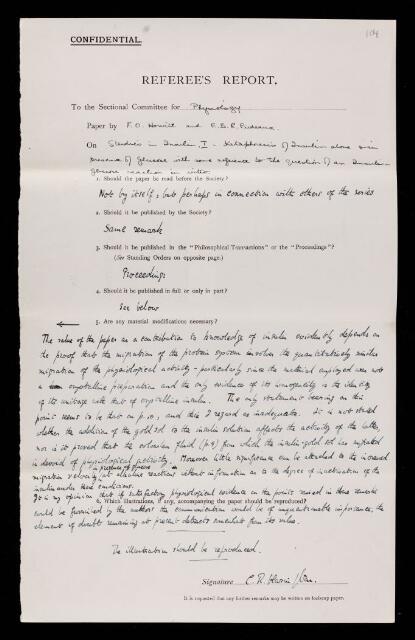 104
CONFIDENTIAL.
REFEREE'S REPORT.
To the Sectional Committee for Physiology
Paper by F. O. Howitt and E. B. R. Prideaux.
On Studies in Insulin I - Kataphoresis of Insulin alone & in
presence of glucose with some reference to the question of an Insulin-
glucose reaction in vitro
1. Should the paper be read before the Society?
Not by itself, but perhaps in connection with others of the series
2. Should it be published by the Society?
Same remark
3. Should it be published in the "Philosophical Transactions" or the "Proceedings"?
(See Standing Orders on opposite page.)
Proceedings
4. Should it be published in full or only in part?
see below
5. Are any material modifications necessary?
The value of the paper as a contribution to knowledge of insulin evidently depends on
the proof that the migration of the protein system involves the quantitatively similar
migration of the physiological activity - particularly since the material employed was not
a crystalline preparation and the only evidence of its homogeneity is the identity
of its mileage rate with that of crystalline insulin. The only statement bearing on this
point seems to be that on p. 10, and this I regard as inadequate. It is not stated
whether the addition of the gold sol to the insulin solution affects the activity of the latter,
nor is it proved that the colourless fluid (p 9) from which the insulin gold sol has migrated
is devoid of physiological activity. Moreover little significance can be attached to the increased
migration velocity in presence of glucose at alkaline reactions without information as to the degree of inactivation of the
insulin under these conditions.
It is my opinion that if satisfactory physiological evidence on the points raised in these remarks
6. Which illustrations, if any, accompanying the paper should be reproduced?
could be furnished by the authors the communication would be of unquestionable importance; the
element of doubt remaining at present detracts somewhat from its value.
The illustrations should be reproduced.
Signature C. R. Harington.
It is requested that any further remarks may be written on foolscap paper.